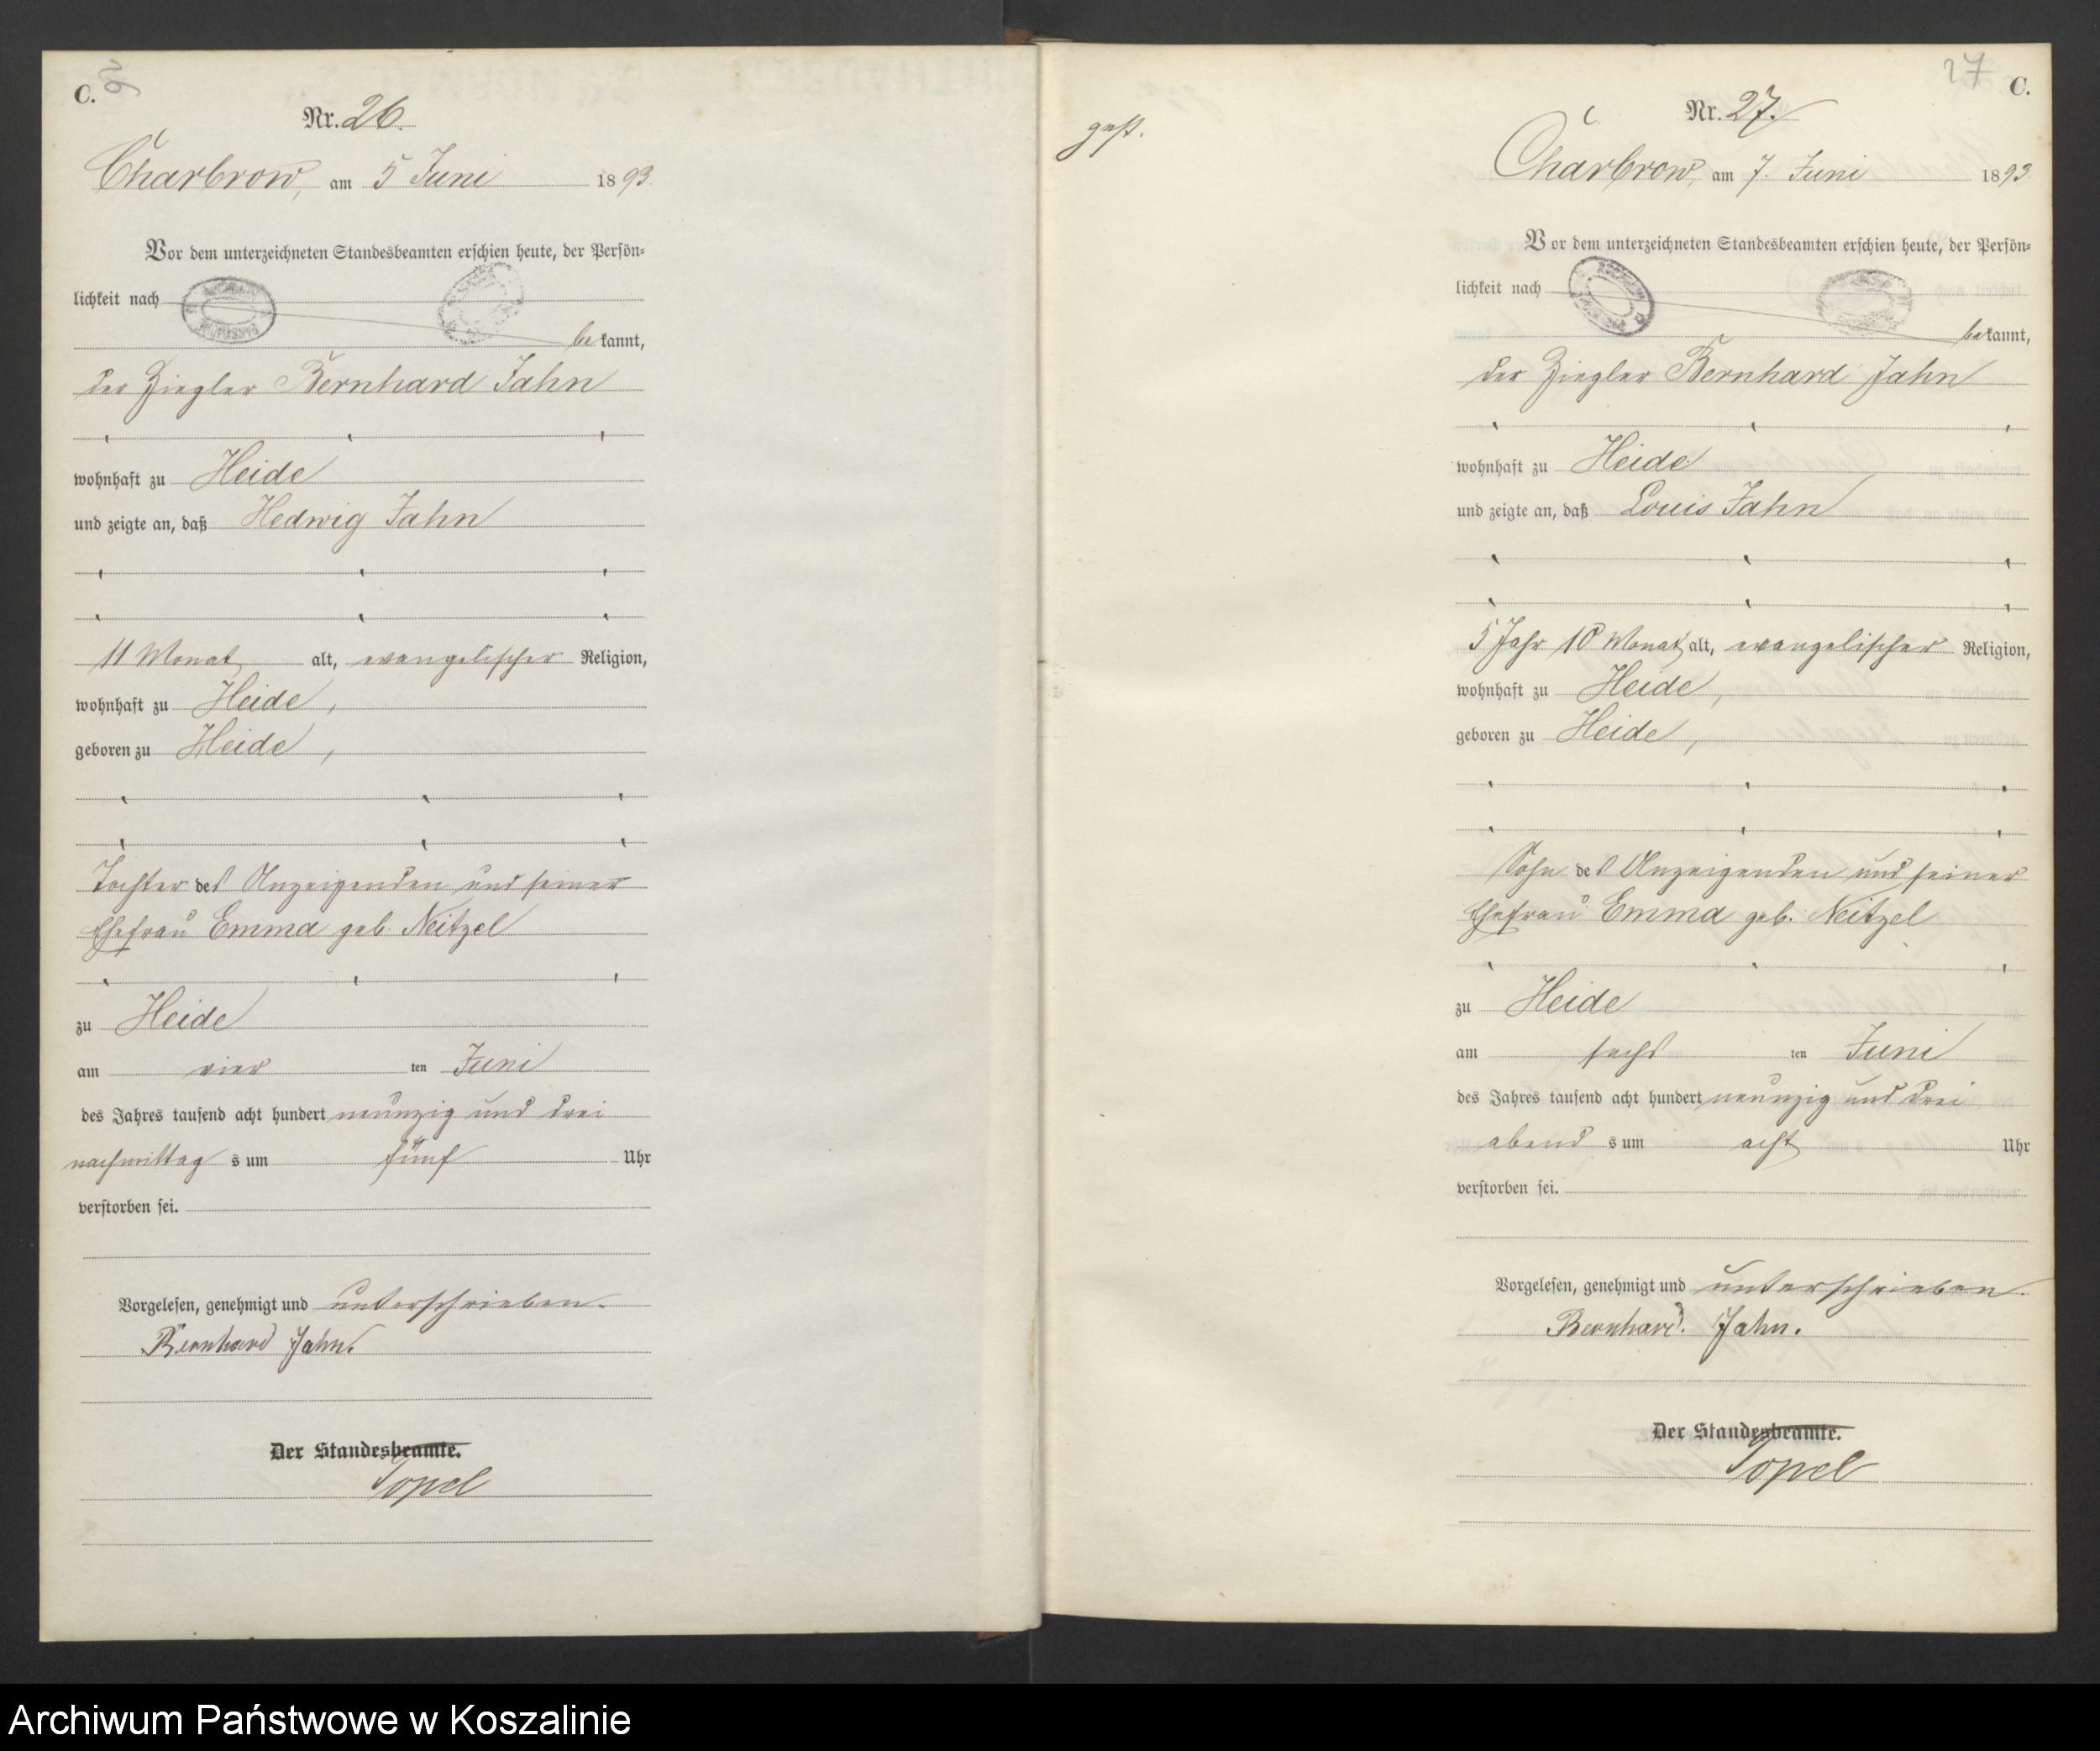 C.
26
Nr. 26.
Charbrow, am 5 Juni 1893.
Vor dem unterzeichneten Standesbeamten erschien heute, der Persön-
lichkeit nach
bekannt,
der Ziegler Bernhard Jahn
wohnhaft zu Heide
und zeigte an, daß Hedwig Jahn
11 Monat alt, evangelischer Religion,
wohnhaft zu Heide,
geboren zu Heide,
Tochter des Anzeigenden und seiner
Ehefrau Emma geb. Neitzel
zu Heide
am vier ten Juni
des Jahres tausend acht hundert neunzig und drei
nachmittag s um fünf Uhr
verstorben sei.
Vorgelesen, genehmigt und unterschrieben.
Bernhard Jahn.
Der Standesbeamte.
Topel
27
C.
gest.
Nr. 27.
Charbrow, am 7. Juni 1893
Vor dem unterzeichneten Standesbeamten erschien heute, der Persön-
lichkeit nach
bekannt,
der Ziegler Bernhard Jahn
wohnhaft zu Heide
und zeigte an, daß Louis Jahn
5 Jahr 10 Monat alt, evangelischer Religion,
wohnhaft zu Heide,
geboren zu Heide,
Sohn des Anzeigenden und seiner
Ehefrau Emma geb. Neitzel
zu Heide
am sechs ten Juni
des Jahres tausend acht hundert neunzig und drei
abend s um acht Uhr
verstorben sei.
Vorgelesen, genehmigt und unterschrieben.
Bernhard. Jahn.
Der Standesbeamte.
Topel
Archiwum Państwowe w Koszalinie